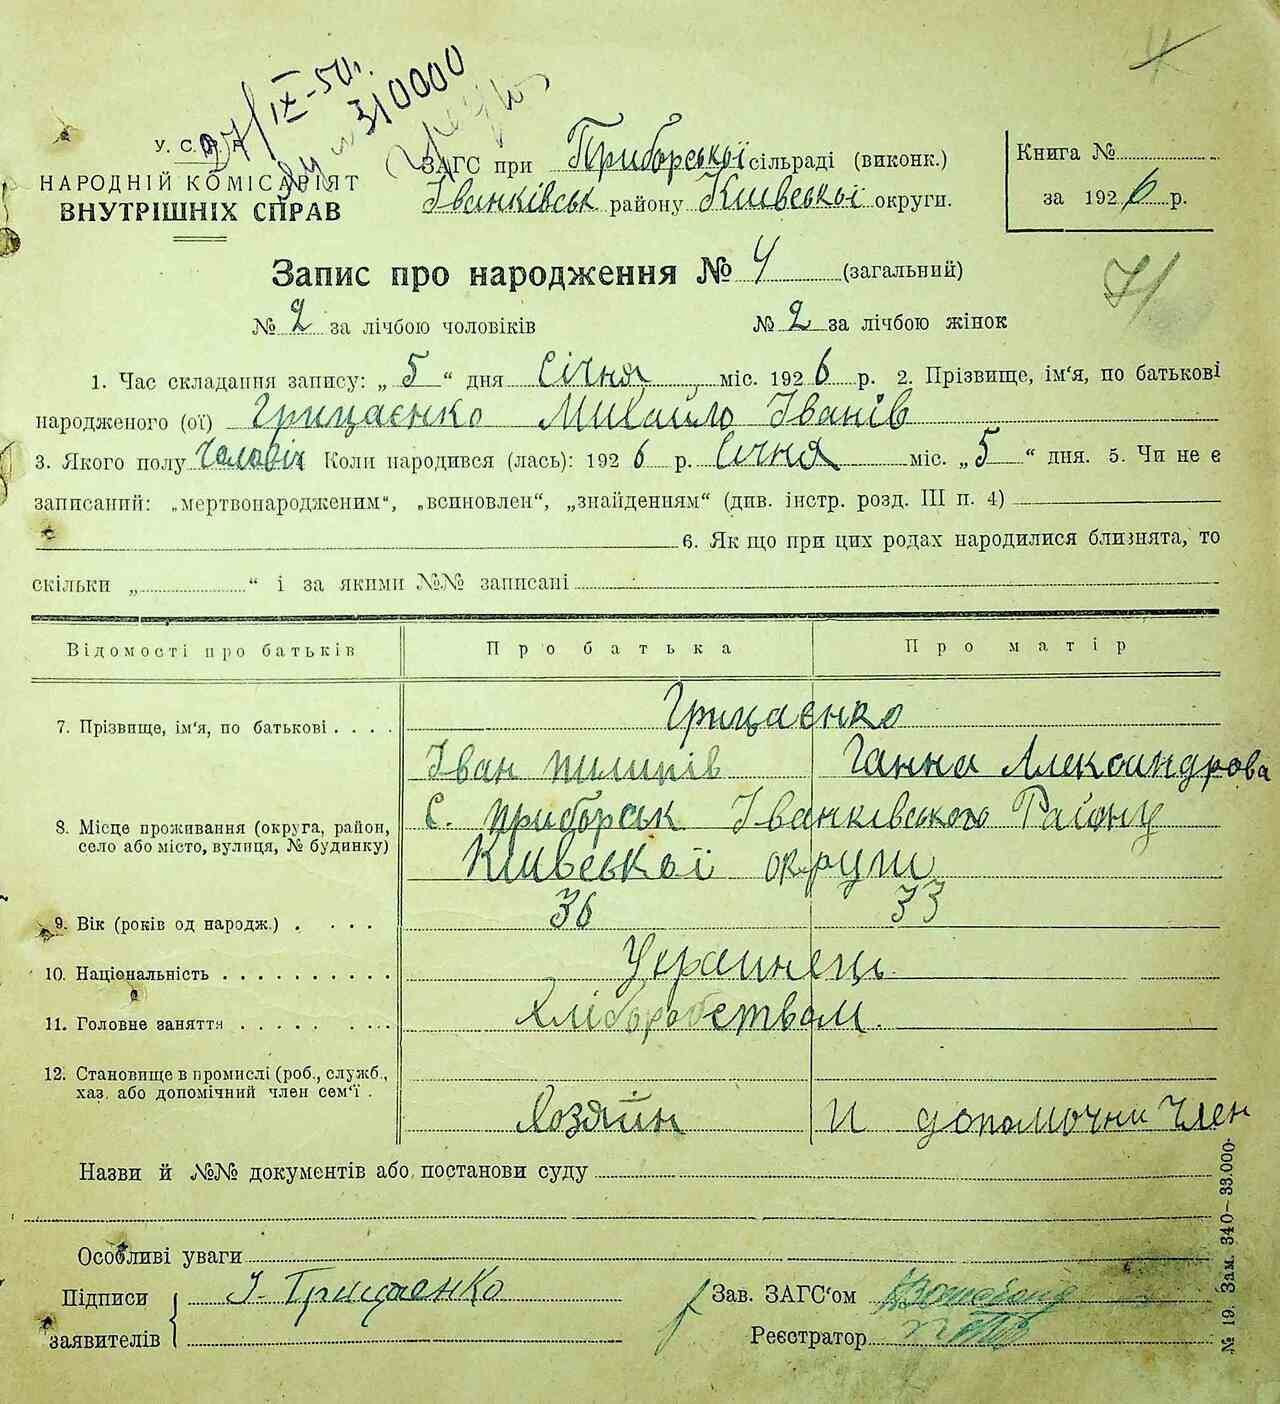 27/IX-50 р.
310000
У. С. Р. Р.
НАРОДНІЙ КОМІСАРІЯТ
ВНУТРІШНІХ СПРАВ
ЗАГС при Приборської сільраді (виконк.)
Іванківськ району Київської округи.
Книга №
за 1926 р.
Запис про народження № 4 (загальний)
71
№ 2 за лічбою чоловіків № 2 за лічбою жінок
1. Час складання запису: „ 5 “ дня Січня міс. 1926 р. 2. Прізвище, ім‘я, по батькові
народженого (ої) Грицаєнко Михайло Іванів
3. Якого полу Чоловіч Коли народився (лась): 1926 р. Січня міс. „ 5 “ дня. 5. Чи не є
записаний: „мертвонародженим“, „всиновлен“, „знайденням“ (див. інстр. розд. III п. 4)
6. Як що при цих родах народилися близнята, то
скільки „ “ і за якими №№ записані
Відомості про батьків Про батька Про матір
7. Прізвище, ім‘я, по батькові . . . . Грицаєнко
Іван Пилипів Ганна Александрова
8. Місце проживання (округа, район,
село або місто, вулиця, № будинку)
С. Приборськ Іванківського Району
Київської округи
9. Вік (років од народж.) . . . . 36 33
10. Національність . . . . . . . . . . Украинець
11. Головне заняття . . . . . . . . Хліборобством.
12. Становище в промислі (роб., служб.,
хаз. або допомічний член сем‘ї .
Хозяйн И допомочни Член
Назви й №№ документів або постанови суду
Особливі уваги
Підписи
заявителів
І. Грицаєнко
Зав. ЗАГС‘ом
Реєстратор
№ 19. Зам. 340–33.000